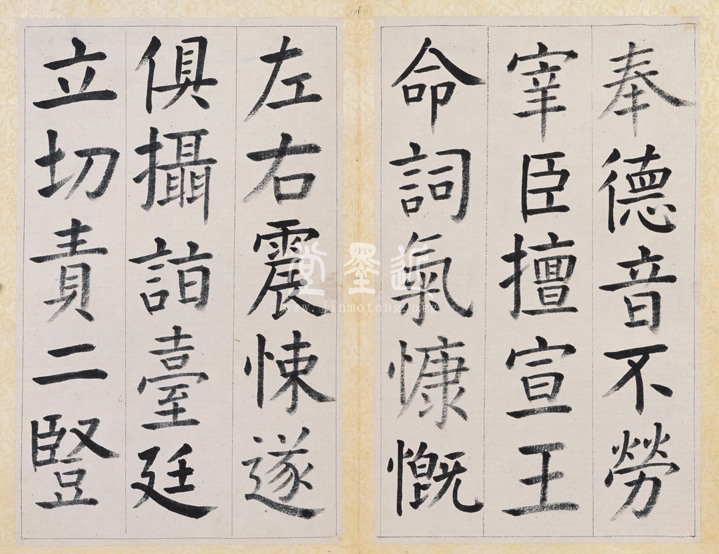 奉德音不勞
宰臣擅宣王
命詞氣慷慨
左右震悚遂
俱攝詣臺廷
立切責二豎
近墨堂
www.jinmotang.com